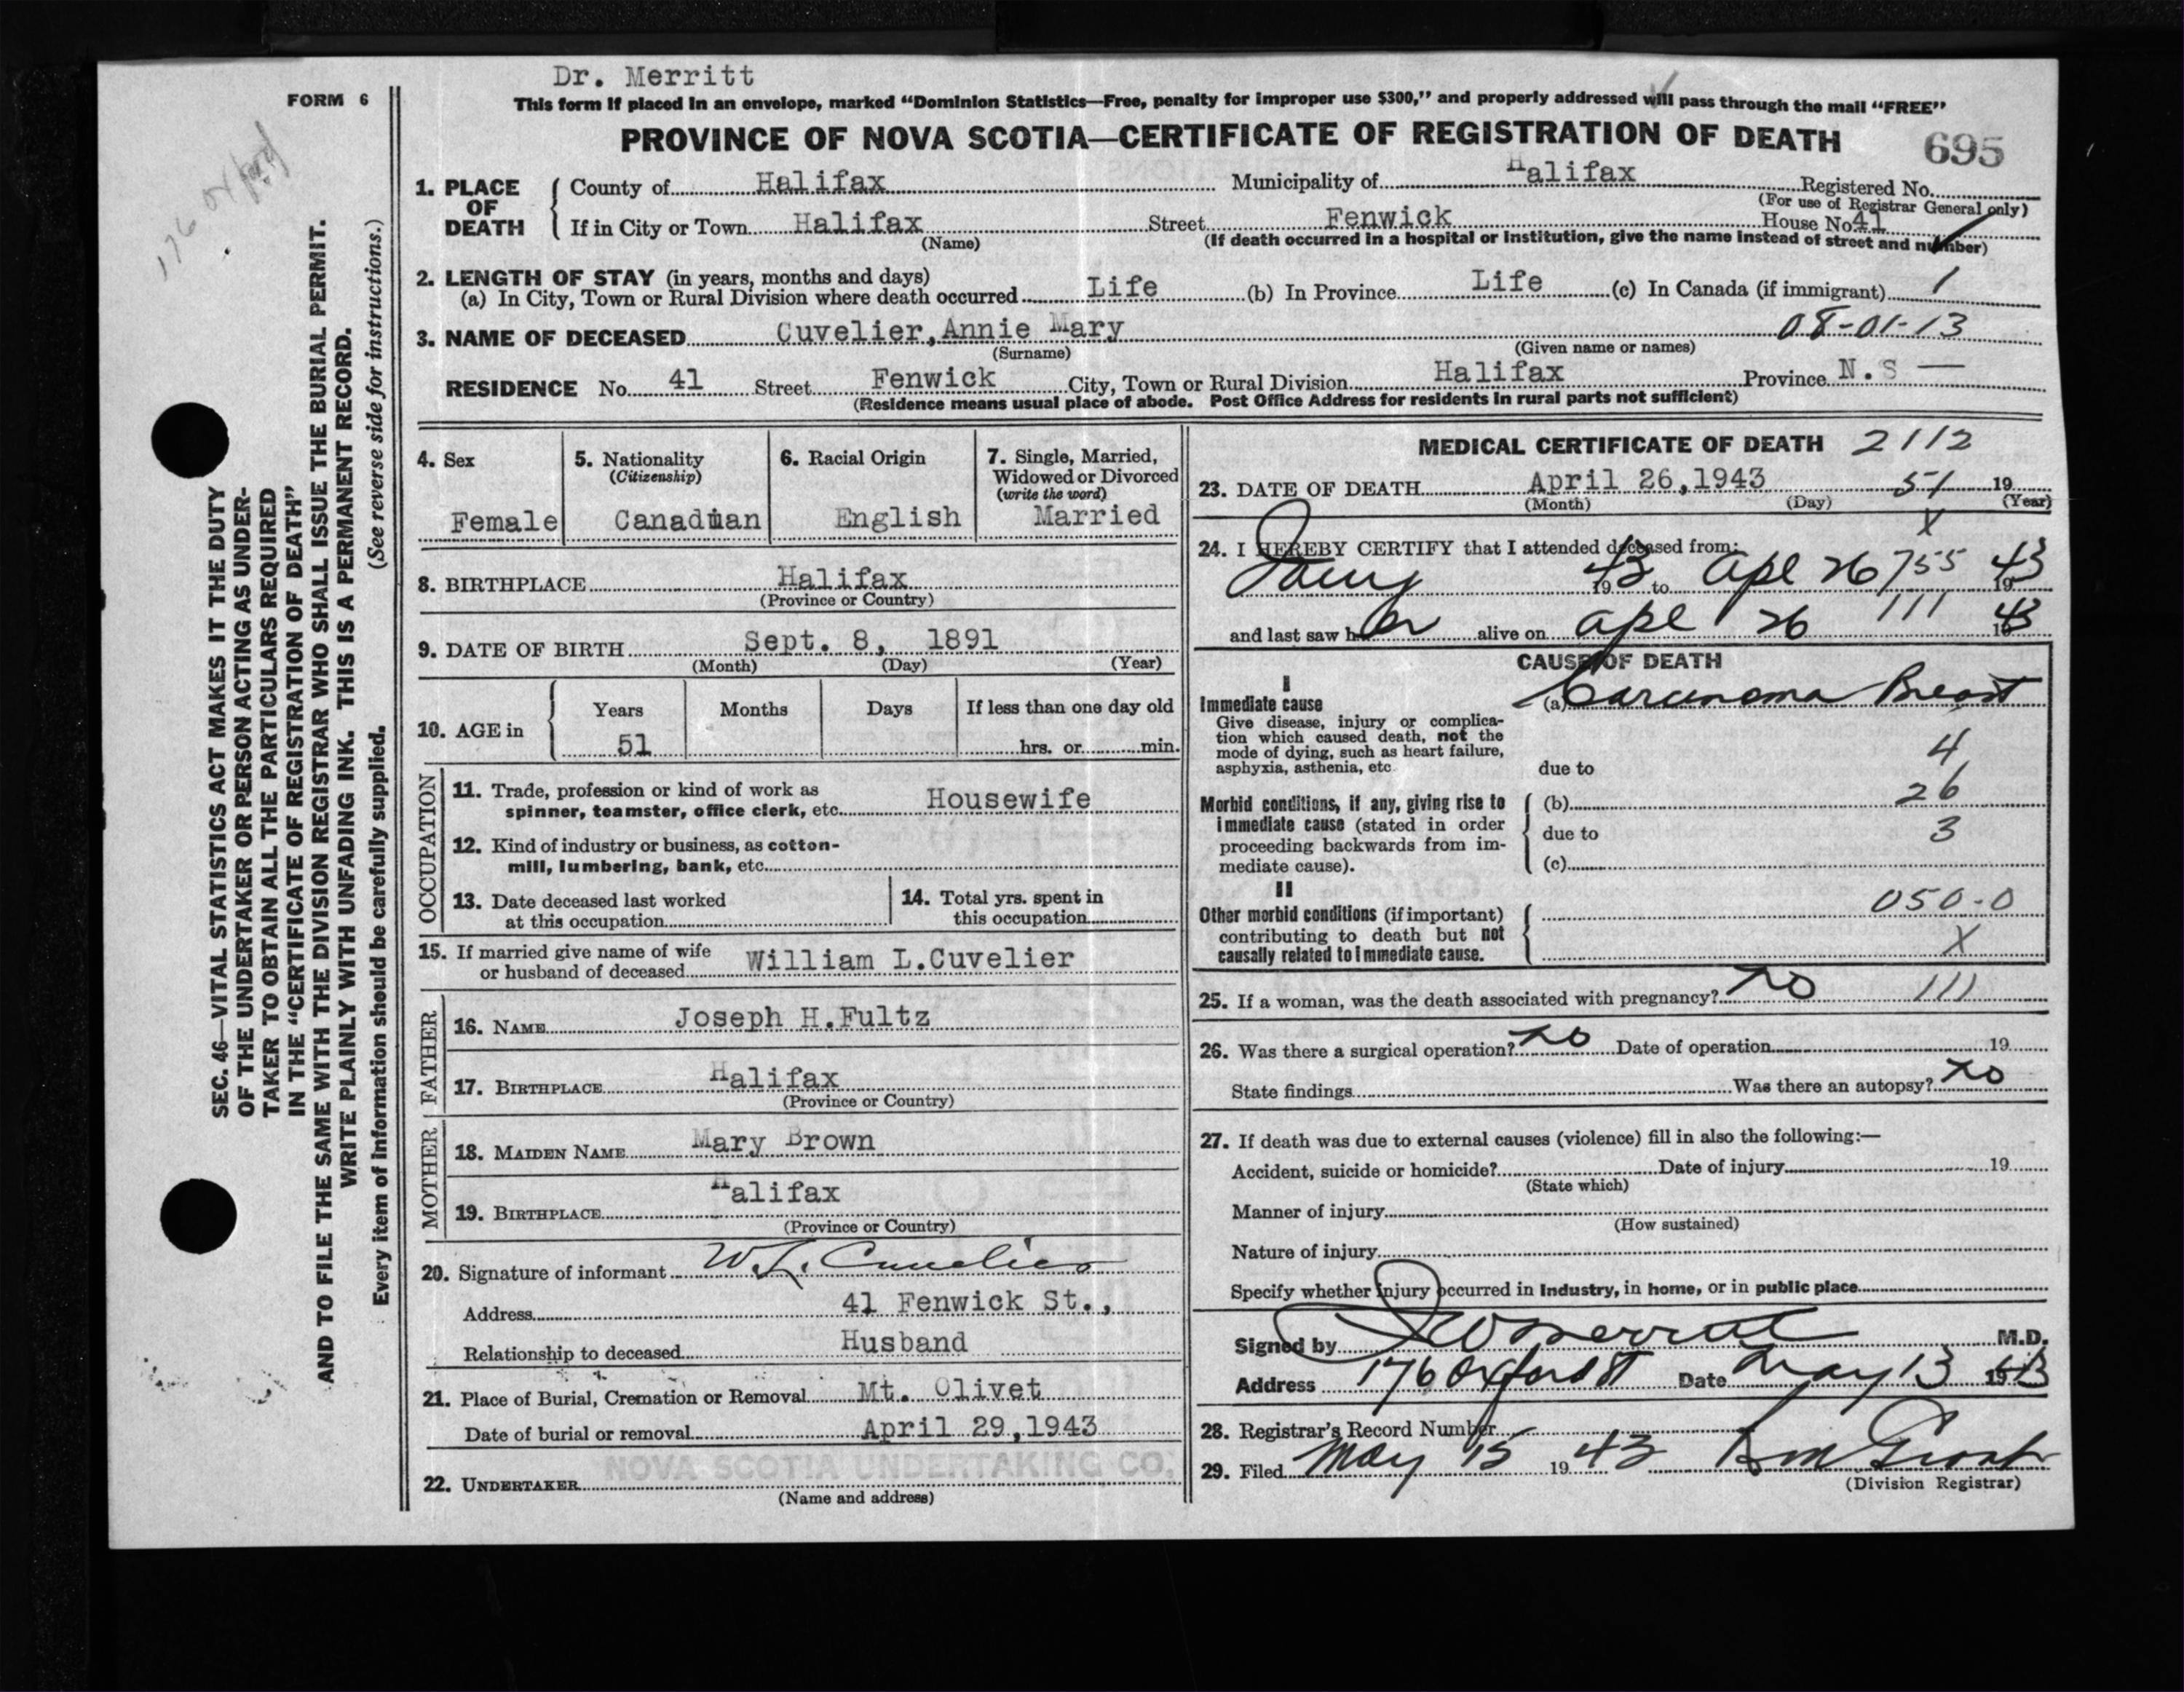 Dr. Merritt
FORM 6
This form if placed in an envelope, marked "Dominion Statistics—Free, penalty for improper use $300," and properly addressed will pass through the mail "FREE"
PROVINCE OF NOVA SCOTIA—CERTIFICATE OF REGISTRATION OF DEATH
695
176 Oxford
1. PLACE OF DEATH { County of Halifax Municipality of Halifax Registered No.
(For use of Registrar General only)
If in City or Town Halifax Street Fenwick House No. 41
(Name) (If death occurred in a hospital or institution, give the name instead of street and number)
2. LENGTH OF STAY (in years, months and days)
(a) In City, Town or Rural Division where death occurred Life (b) In Province Life (c) In Canada (if immigrant) 1
3. NAME OF DECEASED Cuvelier, Annie Mary 08-01-13
(Surname) (Given name or names)
RESIDENCE No. 41 Street Fenwick City, Town or Rural Division Halifax Province N.S —
(Residence means usual place of abode. Post Office Address for residents in rural parts not sufficient)
SEC. 46—VITAL STATISTICS ACT MAKES IT THE DUTY
OF THE UNDERTAKER OR PERSON ACTING AS UNDER-
TAKER TO OBTAIN ALL THE PARTICULARS REQUIRED
IN THE "CERTIFICATE OF REGISTRATION OF DEATH"
AND TO FILE THE SAME WITH THE DIVISION REGISTRAR WHO SHALL ISSUE THE BURIAL PERMIT.
WRITE PLAINLY WITH UNFADING INK. THIS IS A PERMANENT RECORD.
Every item of information should be carefully supplied. (See reverse side for instructions.)
4. Sex
Female
5. Nationality
(Citizenship)
Canadian
6. Racial Origin
English
7. Single, Married,
Widowed or Divorced
(write the word)
Married
8. BIRTHPLACE Halifax
(Province or Country)
9. DATE OF BIRTH Sept. 8, 1891
(Month) (Day) (Year)
10. AGE in { Years Months Days If less than one day old
51 hrs. or min.
OCCUPATION
11. Trade, profession or kind of work as
spinner, teamster, office clerk, etc. Housewife
12. Kind of industry or business, as cotton-
mill, lumbering, bank, etc.
13. Date deceased last worked
at this occupation
14. Total yrs. spent in
this occupation
15. If married give name of wife
or husband of deceased William L.Cuvelier
FATHER
16. NAME Joseph H.Fultz
17. BIRTHPLACE Halifax
(Province or Country)
MOTHER
18. MAIDEN NAME Mary Brown
19. BIRTHPLACE Halifax
(Province or Country)
20. Signature of informant W.L. Cuvelier
Address 41 Fenwick St.,
Relationship to deceased Husband
21. Place of Burial, Cremation or Removal Mt. Olivet
Date of burial or removal April 29,1943
22. UNDERTAKER NOVA SCOTIA UNDERTAKING CO.
(Name and address)
MEDICAL CERTIFICATE OF DEATH 2112
23. DATE OF DEATH April 26,1943 51 19
(Month) (Day) (Year)
X
24. I HEREBY CERTIFY that I attended deceased from:
1943 to Apl 26 755 1943
and last saw her alive on Apl 26 111 1943
CAUSE OF DEATH
I
Immediate cause (a) Carcinoma Breast
Give disease, injury or complica-
tion which caused death, not the
mode of dying, such as heart failure,
asphyxia, asthenia, etc.
4
due to
Morbid conditions, if any, giving rise to { (b) 26
immediate cause (stated in order due to 3
proceeding backwards from im-
mediate cause). (c)
II
Other morbid conditions (if important) 050-0
contributing to death but not
causally related to immediate cause. X
25. If a woman, was the death associated with pregnancy? No 111
26. Was there a surgical operation? No Date of operation 19
State findings Was there an autopsy? No
27. If death was due to external causes (violence) fill in also the following:—
Accident, suicide or homicide? Date of injury 19
(State which)
Manner of injury
(How sustained)
Nature of injury
Specify whether injury occurred in industry, in home, or in public place
Signed by Merritt M.D.
Address 176 Oxford St Date May 13 1943
28. Registrar's Record Number
29. Filed May 15 1943
(Division Registrar)